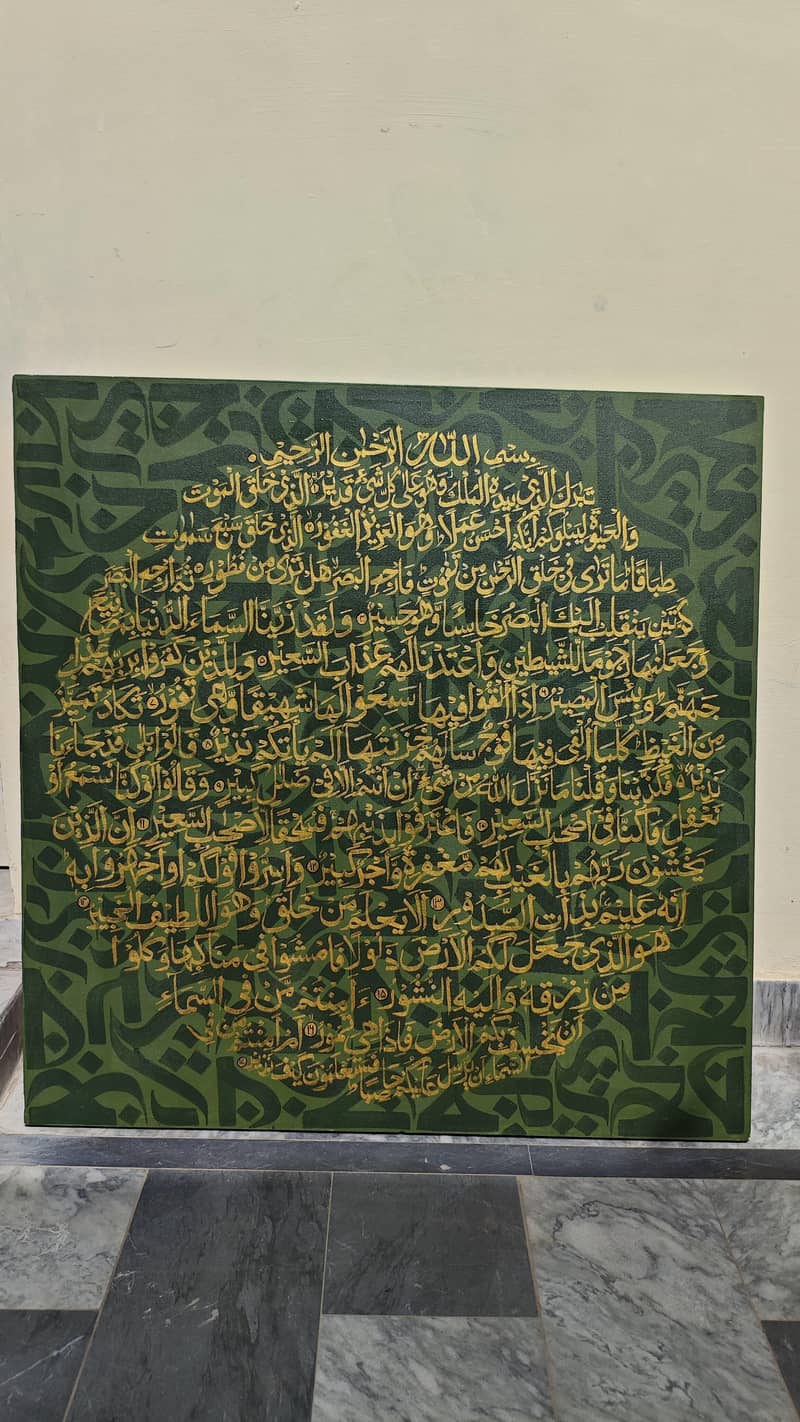 بسم اللہ الرحمن الرحیم
تبرك الذی بیدہ الملك وھو علی كل شیء قدیر الذی خلق الموت
والحیوۃ لیبلوكم ایكم احسن عملا وھو العزیز الغفور الذی خلق سبع سموت
طباقا ما تری فی خلق الرحمن من تفوت فارجع البصر ھل تری من فطور ثم ارجع البصر
كرتین ینقلب الیك البصر خاسئا وھو حسیر ولقد زینا السماء الدنیا بمصابیح
وجعلنھا رجوما للشیطین واعتدنا لھم عذاب السعیر وللذین كفروا بربھم عذاب
جھنم وبئس المصیر اذا القوا فیھا سمعوا لھا شھیقا وھی تفور تكاد تمیز
من الغیظ كلما القی فیھا فوج سالھم خزنتھا الم یاتكم نذیر قالوا بلی قد جاءنا
نذیر فكذبنا وقلنا ما نزل اللہ من شیء ان انتم الا فی ضلل كبیر وقالوا لو كنا نسمع او
نعقل ما كنا فی اصحب السعیر فاعترفوا بذنبھم فسحقا لاصحب السعیر ان الذین
یخشون ربھم بالغیب لھم مغفرۃ واجر كبیر ۱۲ واسروا قولكم او اجھروا بہ
انہ علیم بذات الصدور ۱۳ الا یعلم من خلق وھو اللطیف الخبیر ۱۴
ھو الذی جعل لكم الارض ذلولا فامشوا فی مناكبھا وكلوا
من رزقہ والیہ النشور ۱۵ ءامنتم من فی السماء
ان یخسف بكم الارض فاذا ھی تمور ۱۶ ام امنتم من فی
السماء ان یرسل علیكم حاصبا فستعلمون كیف نذیر ۱۷